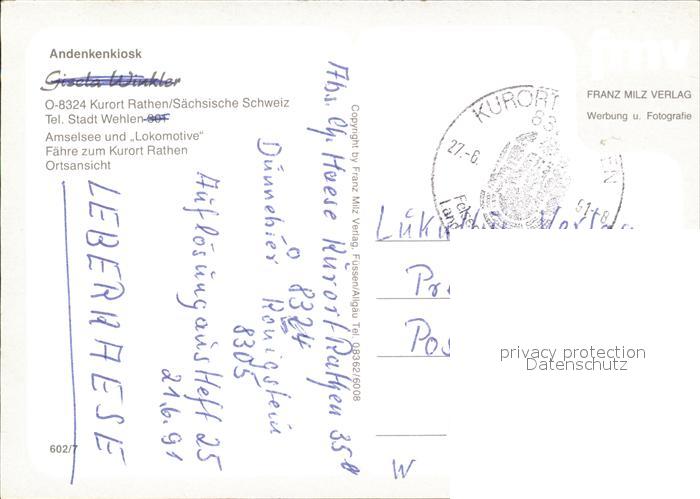 Andenkenkiosk
Gisela Winkler
O-8324 Kurort Rathen/Sächsische Schweiz
Tel. Stadt Wehlen 801
Amselsee und „Lokomotive"
Fähre zum Kurort Rathen
Ortsansicht
602/7
fmv
FRANZ MILZ VERLAG
Werbung u. Fotografie
Copyright by Franz Milz Verlag, Füssen/Allgäu Tel. 08362/6008
KURORT
83
27.-6.
91-8
EN
Abs. Ch. Haese Kurort Rathen 35a
O 8324
Dünnebier Königstein
8305
Auflösung aus Heft 25
21.6.91
LEBERKAESE
Verlag
Pr
Pos
W
privacy protection
Datenschutz